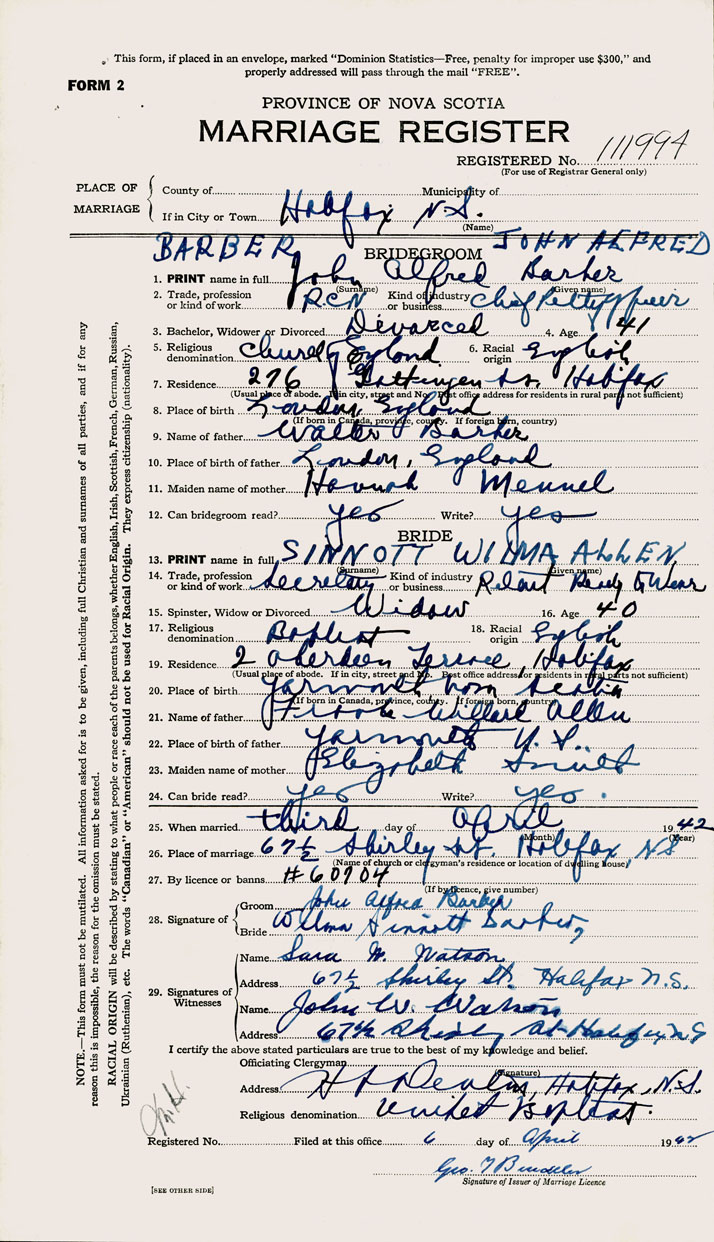 This form, if placed in an envelope, marked "Dominion Statistics—Free, penalty for improper use $300," and
properly addressed will pass through the mail "FREE".
FORM 2
PROVINCE OF NOVA SCOTIA
MARRIAGE REGISTER
REGISTERED No. 111994
(For use of Registrar General only)
PLACE OF MARRIAGE
County of Municipality of
If in City or Town Halifax N.S.
(Name)
BARBER JOHN ALFRED
BRIDEGROOM
1. PRINT name in full John Alfred Barber
(Surname) (Given name)
2. Trade, profession or kind of work RCN Kind of industry or business Chief Petty Officer
3. Bachelor, Widower or Divorced Divorced 4. Age 41
5. Religious denomination Church of England 6. Racial origin English
7. Residence 276 Gottingen St. Halifax
(Usual place of abode. If in city, street and No. Post office address for residents in rural parts not sufficient)
8. Place of birth London, England
(If born in Canada, province, county. If foreign born, country)
9. Name of father Walter Barber
10. Place of birth of father London, England
11. Maiden name of mother Hannah Mennel
12. Can bridegroom read? yes Write? yes
BRIDE
13. PRINT name in full SINNOTT WILMA ALLEN
(Surname) (Given name)
14. Trade, profession or kind of work Secretary Kind of industry or business Ready to Wear
15. Spinster, Widow or Divorced Widow 16. Age 40
17. Religious denomination Baptist 18. Racial origin English
19. Residence 2 Aberdeen Terrace, Halifax
(Usual place of abode. If in city, street and No. Post office address for residents in rural parts not sufficient)
20. Place of birth Yarmouth Nova Scotia
(If born in Canada, province, county. If foreign born, country)
21. Name of father Frank Willard Allen
22. Place of birth of father Yarmouth N.S.
23. Maiden name of mother Elizabeth
24. Can bride read? yes Write? yes.
25. When married third day of April 1942
(Month) (Year)
26. Place of marriage 67½ Shirley St. Halifax, NS
(Name of church or clergyman's residence or location of dwelling house)
27. By licence or banns #60904
(If by licence, give number)
28. Signature of
Groom John Alfred Barber
Bride Wilma Sinnott Barber
29. Signatures of Witnesses
Name Sara M. Watson
Address 67½ Shirley St. Halifax N.S.
Name John W. Watson
Address 67½ Shirley St Halifax N.S
I certify the above stated particulars are true to the best of my knowledge and belief.
Officiating Clergyman
(Signature)
Address Halifax, N.S.
Religious denomination United Baptist.
Registered No. Filed at this office 6 day of April 1942
Geo.
Signature of Issuer of Marriage Licence
[SEE OTHER SIDE]
NOTE.—This form must not be mutilated. All information asked for is to be given, including full Christian and surnames of all parties, and if for any
reason this is impossible, the reason for the omission must be stated.
RACIAL ORIGIN will be described by stating to what people or race each of the parents belongs, whether English, Irish, Scottish, French, German, Russian,
Ukrainian (Ruthenian), etc. The words "Canadian" or "American" should not be used for Racial Origin. They express citizenship (nationality).